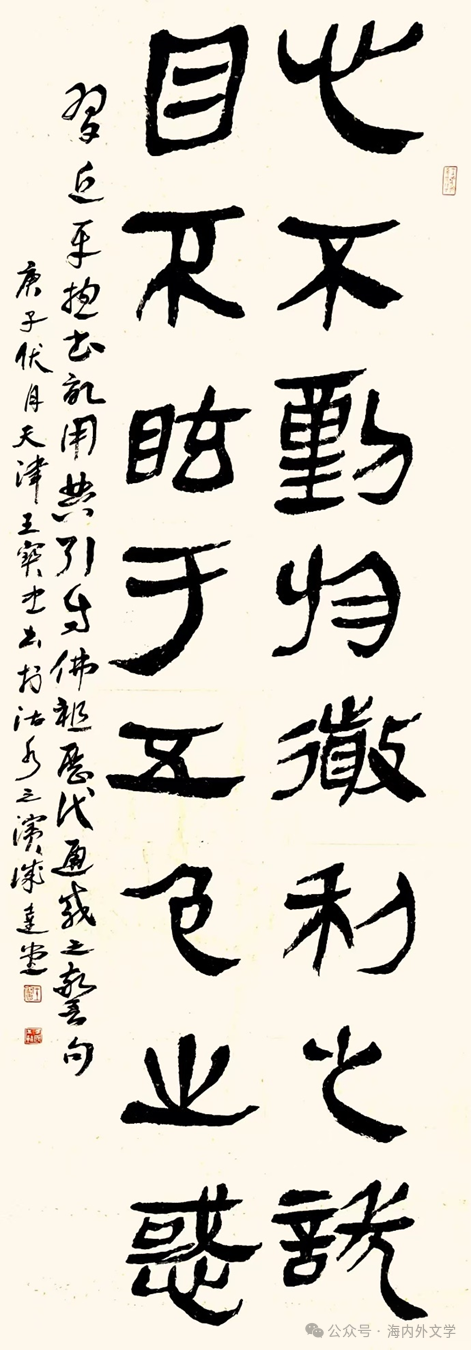 心不動於微利之誘
目不眩于五色之惑
習近平總書記用典引自佛祖歷代通載之警句
庚子伏月天津王寶書於沽水之濱達堂
公众号 · 海内外文学